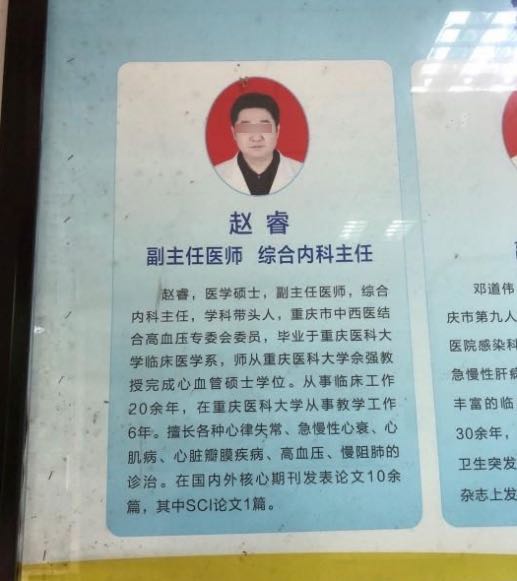 赵睿
副主任医师 综合内科主任
赵睿，医学硕士，副主任医师，综合
内科主任，学科带头人，重庆市中西医结
合高血压专委会委员，毕业于重庆医科大
学临床医学系，师从重庆医科大学余强教
授完成心血管硕士学位。从事临床工作
20余年，在重庆医科大学从事教学工作
6年。擅长各种心律失常、急慢性心衰、心
肌病、心脏瓣膜疾病、高血压、慢阻肺的
诊治。在国内外核心期刊发表论文10余
篇，其中SCI论文1篇。
邓道伟
庆市第九人
医院感染科
急慢性肝病
丰富的临
30余年，
卫生突发
杂志上发